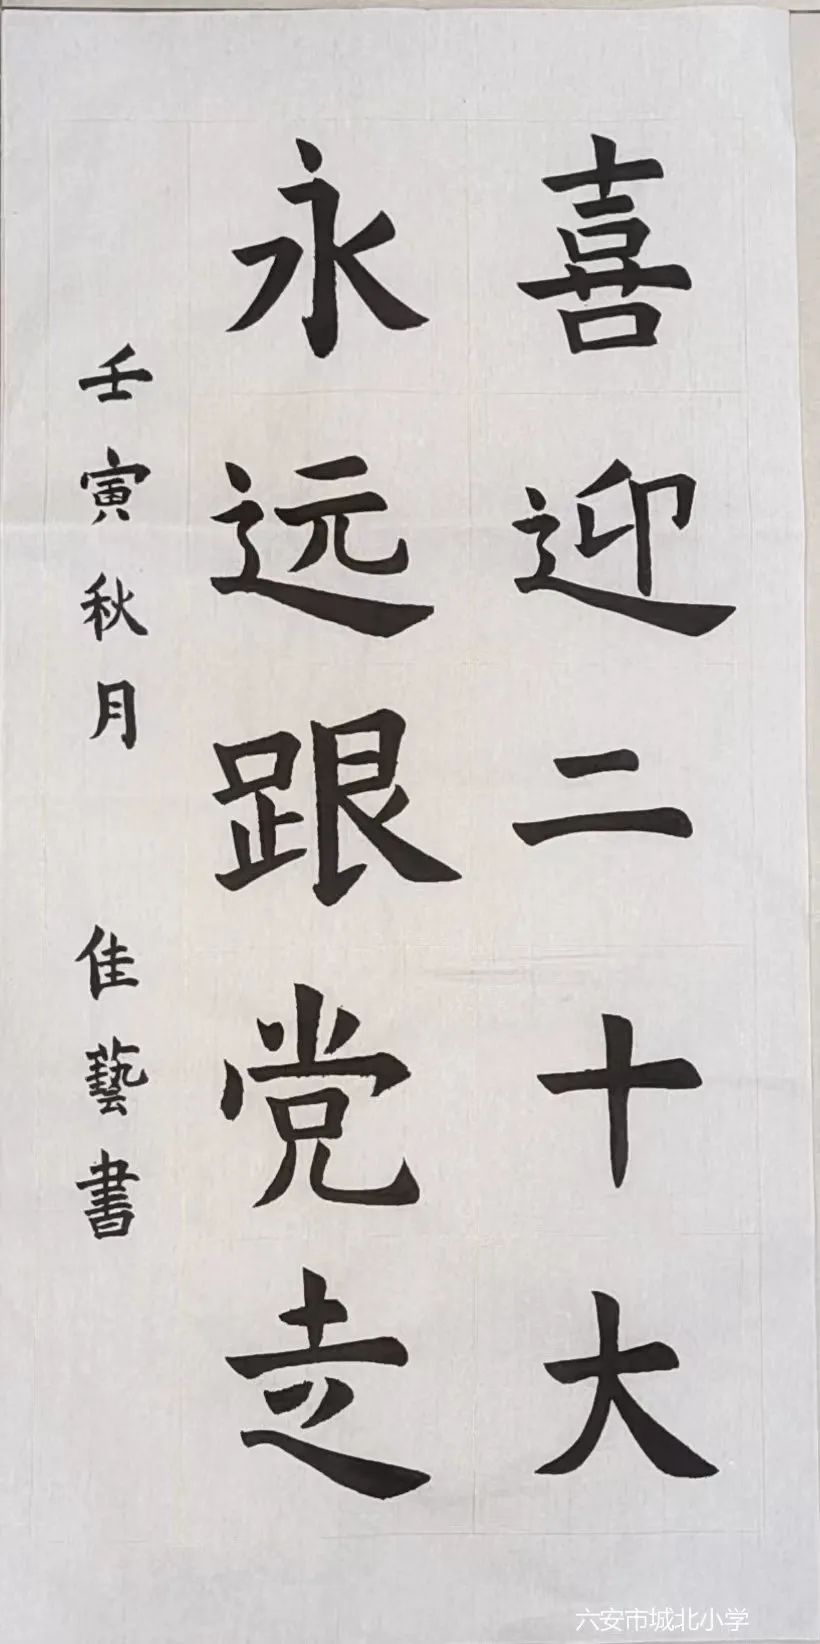 喜迎二十大
永远跟党走
壬寅秋月 佳藝書
六安市城北小学